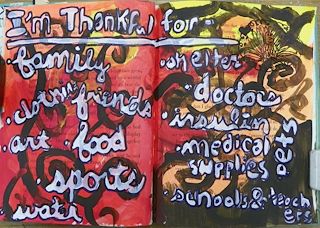 I'm Thankful for-
·family
·friends
·art ·food
·sports
·water
·shelter
·doctors
·insulin
·medical
supplies
pets
·schools & teach
ers